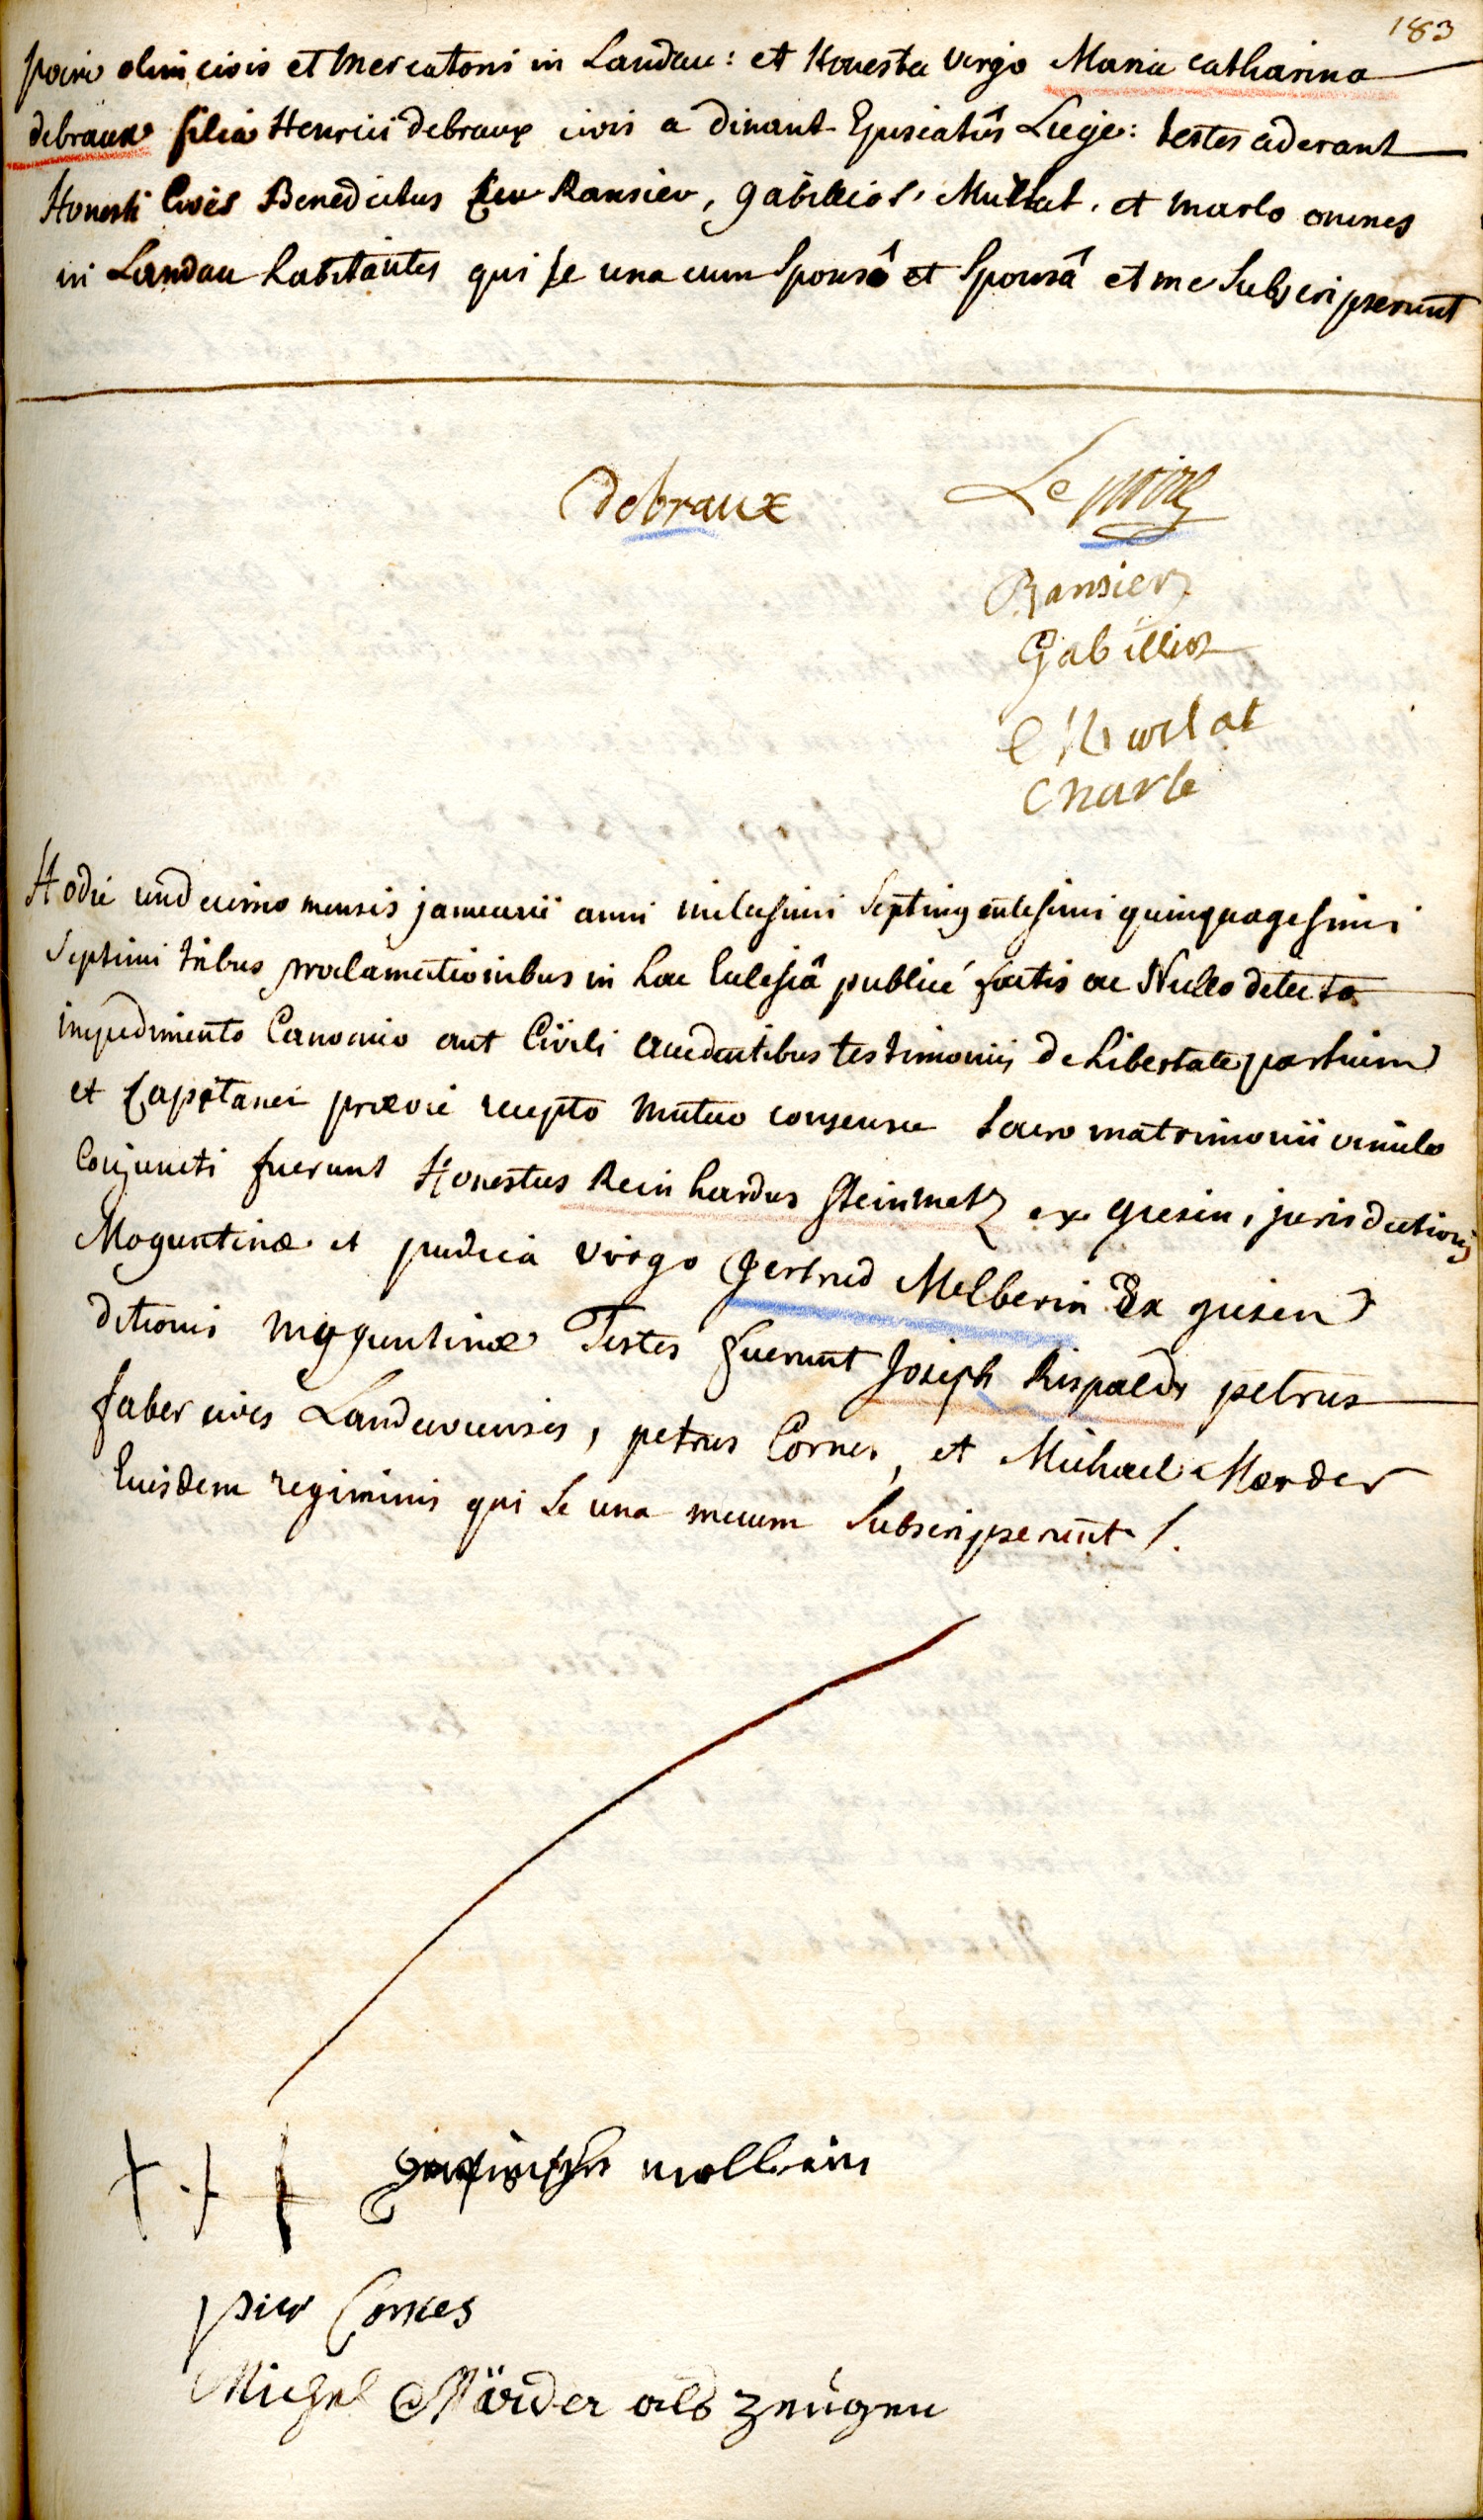 183
poire olim civis et Mercatoris in Landau: et Honesta virgo Maria catharina
debraux filia Henrici debraux civis a dinant Episcatûs Liege: testes aderant
Honesti Cives Benedictus Ransier, gabilliot, Mullat, et Marlo omnes
in Landau habitantes qui se una cum Sponsô et Sponsâ et me Subscripserunt
debraux Lepoire
Ransier
Gabilliot
Charle
Hodie undecimo mensis januarii anni milesimi Septingentesimi quinquagesimi
Septimi tribus proclamationibus in hac Eclesiâ publicé factis ac Nullo detecto
impedimento Canonico aut Civili accedentibus testimoniis de Libertate partium
et Capitanei prævie recepto mutuo consensu Sacro matrimonii vinculo
Conjuncti fuerunt Honestus Reinhardus Steinmetz ex giesen, jurisdictionis
Moguntinæ et pudica virgo Gertrud Melberin Ex giesen
ditionis moguntinæ Testes fuerunt Joseph Rispaldi petrus
faber cives Landavienses, petrus Cornes, et Michael Marder
Euisdem regiminis qui se una mecum Subscripserunt /.
mellberin
pier Cornes
Michel Märder als zeügen